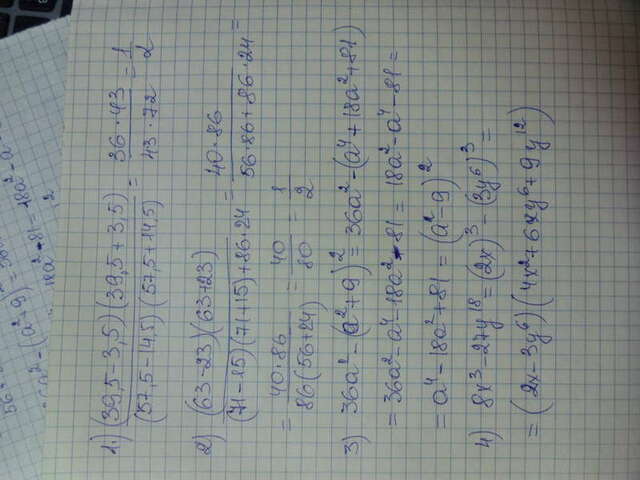 1.) (39,5-3,5)(39,5+3,5) / (57,5-14,5)(57,5+14,5) = 36·43 / 43·72 = 1/2
2) (63-23)(63+23) / (71-15)(71+15)+86·24 = 40·86 / 56·86+86·24 =
= 40·86 / 86(56+24) = 40/80 = 1/2
3) 36a²-(a²+9)²=36a²-(a⁴+18a²+81)
=36a²-a⁴-18a²-81=18a²-a⁴-81=
=a⁴-18a²+81=(a²-9)²
4) 8x³-27y¹⁸=(2x)³-(3y⁶)³=
=(2x-3y⁶)(4x²+6xy⁶+9y¹²)